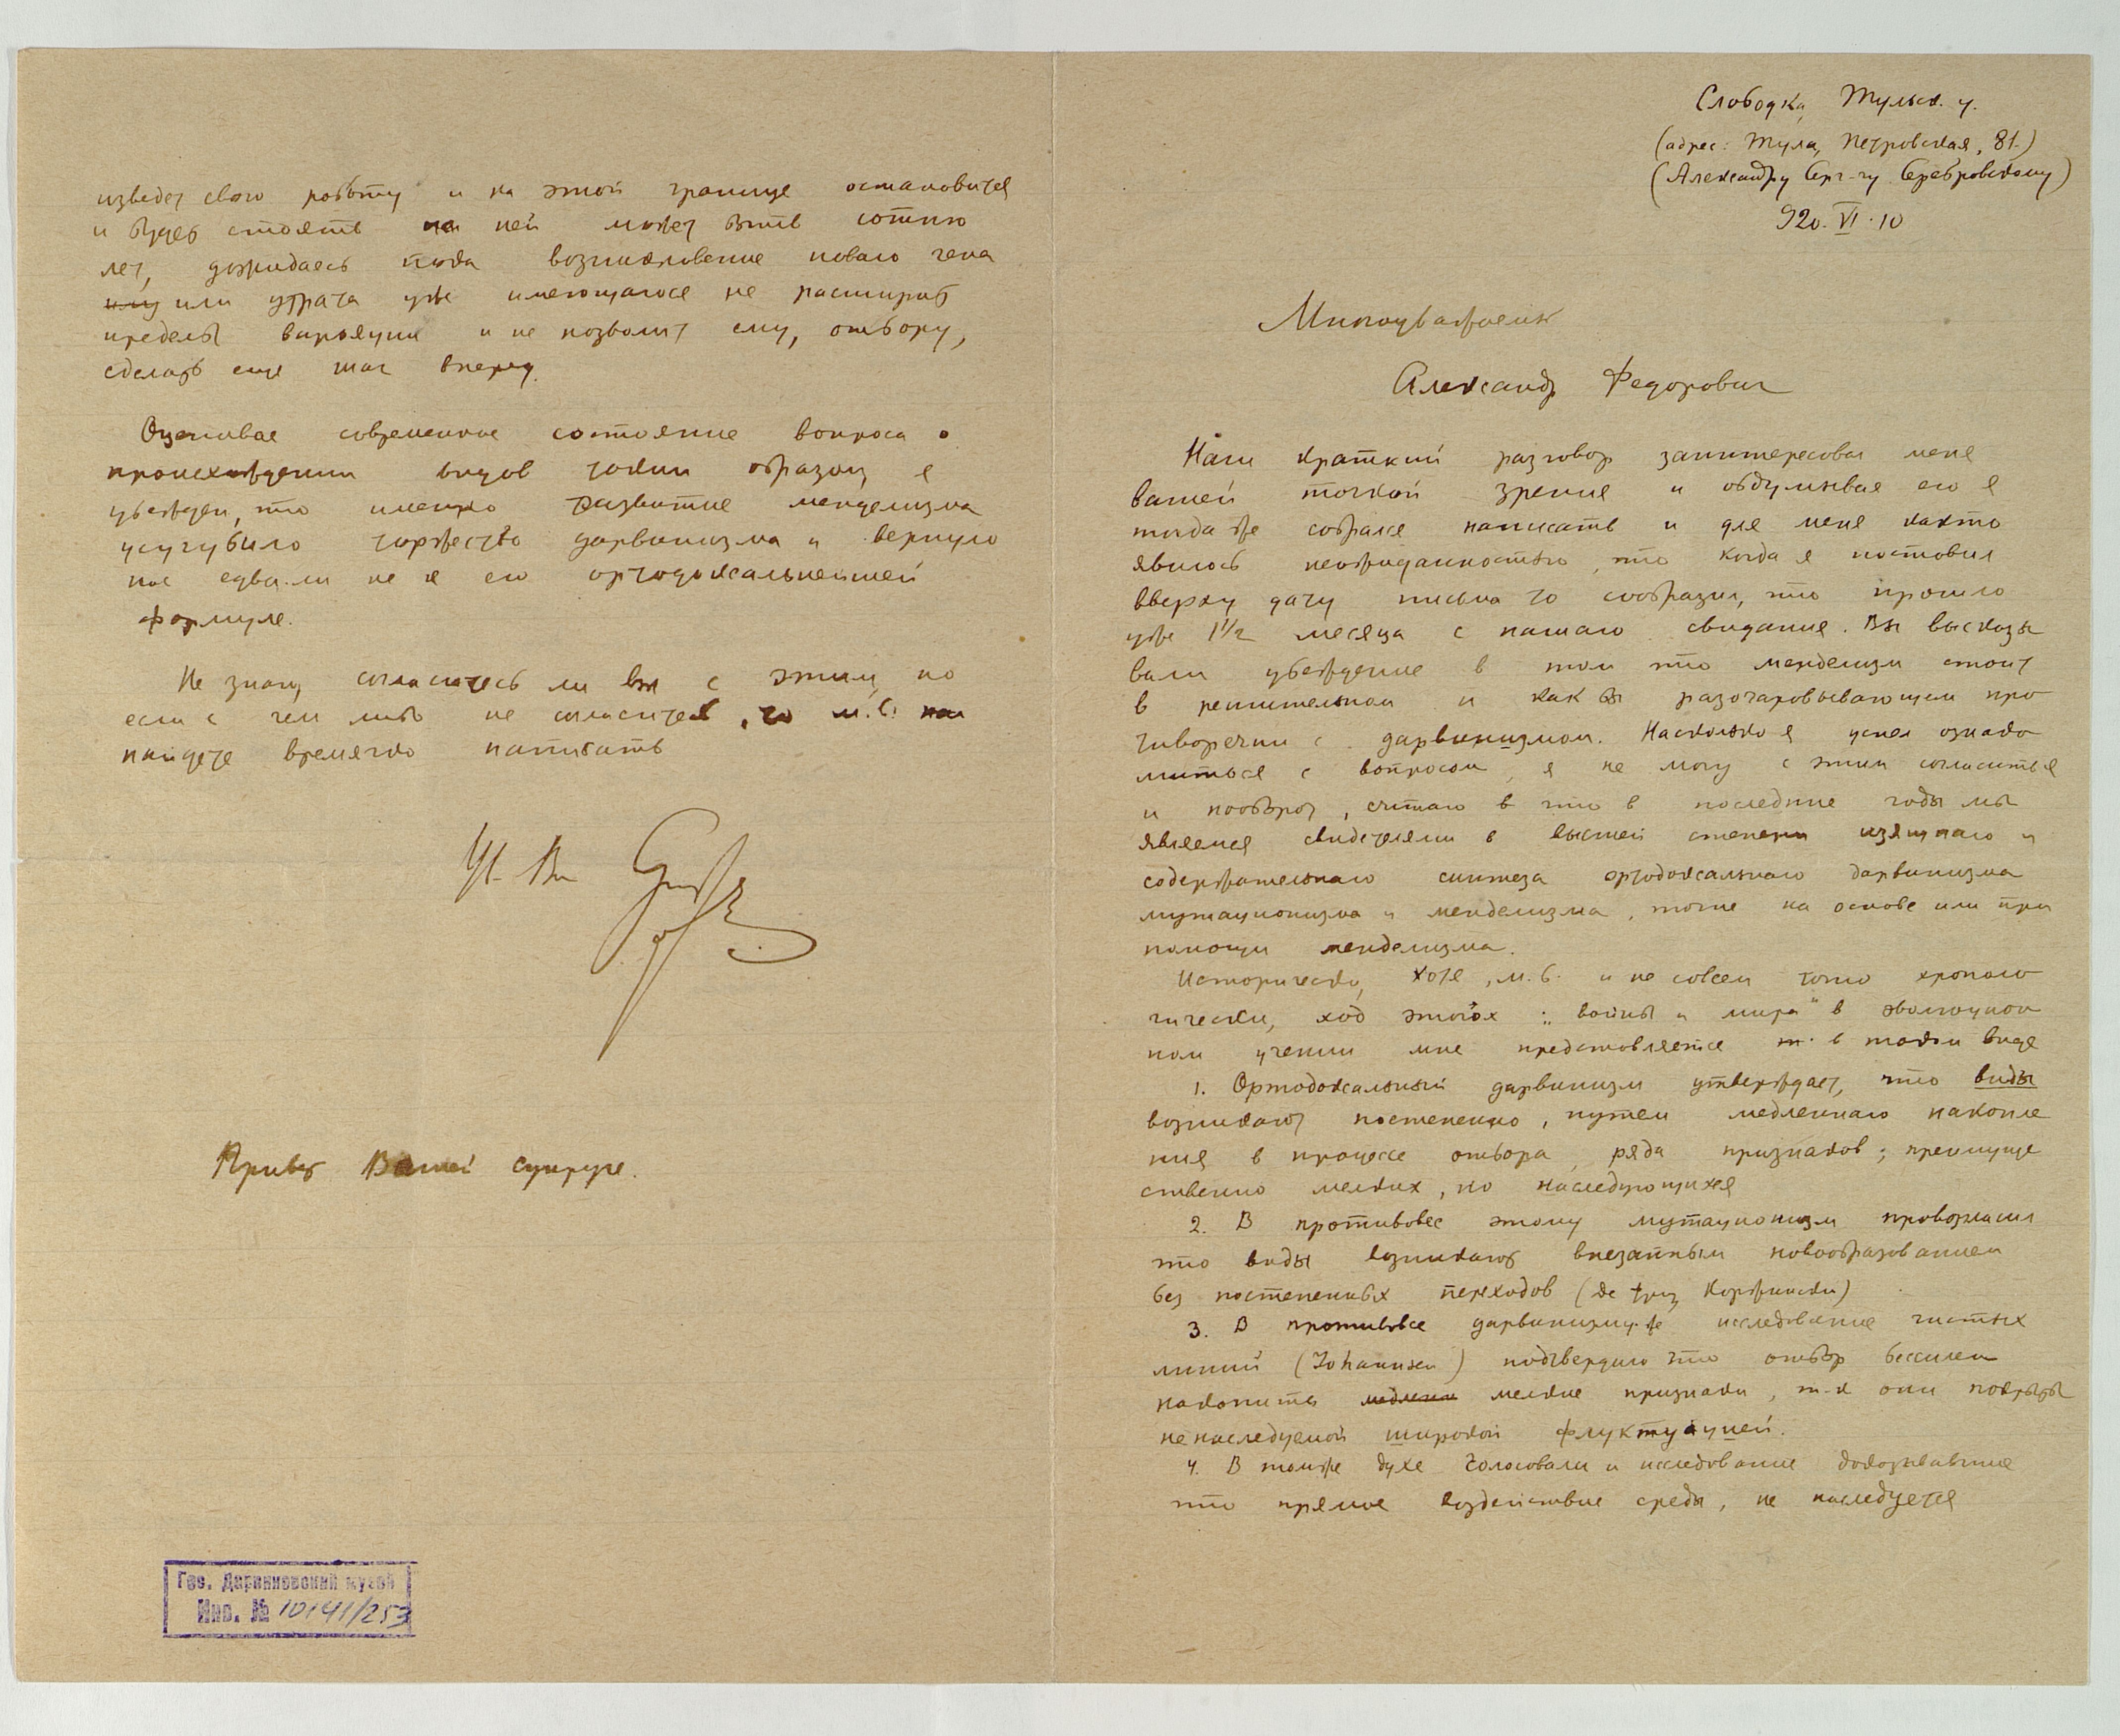 Слободка, Тульск. у.
(адрес: Тула, Петровская, 81.)
(Александру Серг-чу Серебровскому)
920.VI.10
Многоуважаемый
Александр Федорович
Наш краткий разговор заинтересовал меня
вашей точкой зрения и обдумывая его я
тогда же собрался написать и для меня както
явилось неожиданностью, что когда я поставил
вверху дату письма то сообразил, что прошло
уже 1 1/2 месяца с нашаго свидания. Вы высказы
вали убеждение в том что менделизм стоит
в решительном и как бы разочаровывающем про
тиворечии с дарвинизмом. Насколько я успел ознако
миться с вопросом, я не могу с этим согласиться
и наоборот, считаю что в последние годы мы
являемся свидетелями в высшей степени изящнаго и
содержательнаго синтеза ортодоксальнаго дарвинизма
мутационизма и менделизма, точне на основе или при
помощи менделизма.
Исторически, хотя, м.б. и не совсем точно хроноло
гически, ход этой „войны и мира" в эволюцион
ном учении мне представляется в таком виде
1. Ортодоксальный дарвинизм утверждает, что виды
возникают постепенно, путем медленнаго накопле
ния в процессе отбора, ряда признаков; преимуще
ственно мелких, но наследующихся
2. В противовес этому мутационизм провозгласил
что виды возникают внезапным новообразованием
без постепенных переходов (де Фриз, Коржински)
3. В противовес дарвинизму же исследование чистых
линий (Johannsen) подтвердило что отбор бессилен
накопить мелкие признаки, т-к они покрыты
ненаследуемой широкой флуктуацией.
4. В томже духе голосовали и исследование доказывавшие
что прямое воздействие среды, не наследуется
изведет свою работу и на этой границе остановится
и будет стоять на ней может быть сотню
лет, дожидаясь пока возникновение новаго гена
или утрата уже имеющагося не расширит
пределы вариации и не позволит ему, отбору,
сделать еще шаг вперед.
Оценивая современное состояние вопроса о
происхождении видов таким образом, я
убежден, что именно развитие менделизма
усугубило торжество дарвинизма и вернуло
нас едва-ли не к его ортодоксальнейшей
формуле.
Не знаю, согласитесь ли вы с этим, но
если с чем либо не согласитесь, то м.б.
найдете времячко написать
Ув. Вас
Привет Вашей супруге.
Гос. Дарвиновский музей
Инв. № 10141/253